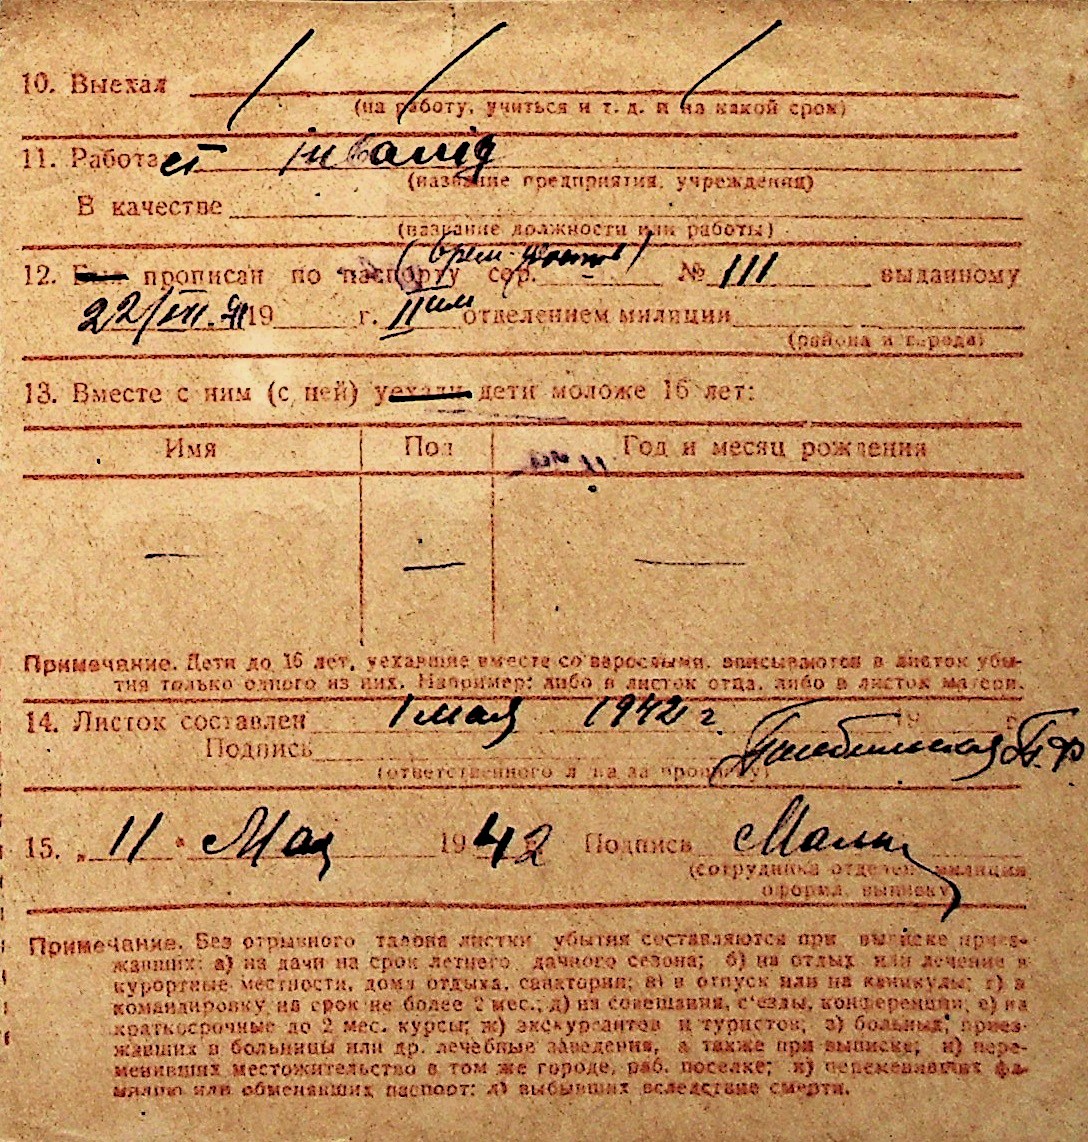 10. Выехал
(на работу, учиться и т. д. и на какой срок)
11. Работает инвалид
(название предприятия, учреждения)
В качестве
(название должности или работы)
(врем.
12. Был прописан по паспорту сер. № 111 выданному
22/VIII. 41 19 г. II им отделением милиции
(района и города)
13. Вместе с ним (с ней) уехали дети моложе 16 лет:
Имя Пол Год и месяц рождения
— — —
Примечание. Дети до 16 лет, уехавшие вместе со взрослыми, вписываются в листок убы-
тия только одного из них. Например: либо в листок отца, либо в листок матери.
14. Листок составлен 1 мая 1942 г 19 г.
Подпись
(ответственного лица за прописку)
15. „ 11 " Мая 1942 г. Подпись
(сотрудника отделен. милиции
оформл. выписку)
Примечание. Без отрывного талона листки убытия составляются при выписке приез-
жавших: а) на дачи на срок летнего дачного сезона; б) на отдых или лечение в
курортные местности, дома отдыха, санатории; в) в отпуск или на каникулы; г) в
командировку на срок не более 2 мес.; д) на совещания, с'езды, конференции; е) на
краткосрочные до 2 мес. курсы; ж) экскурсантов и туристов; з) больных, приез-
жавших в больницы или др. лечебные заведения, а также при выписке; и) пере-
менивших местожительство в том же городе, раб. поселке; к) переменивших фа-
милию или обменявших паспорт; л) выбывших вследствие смерти.